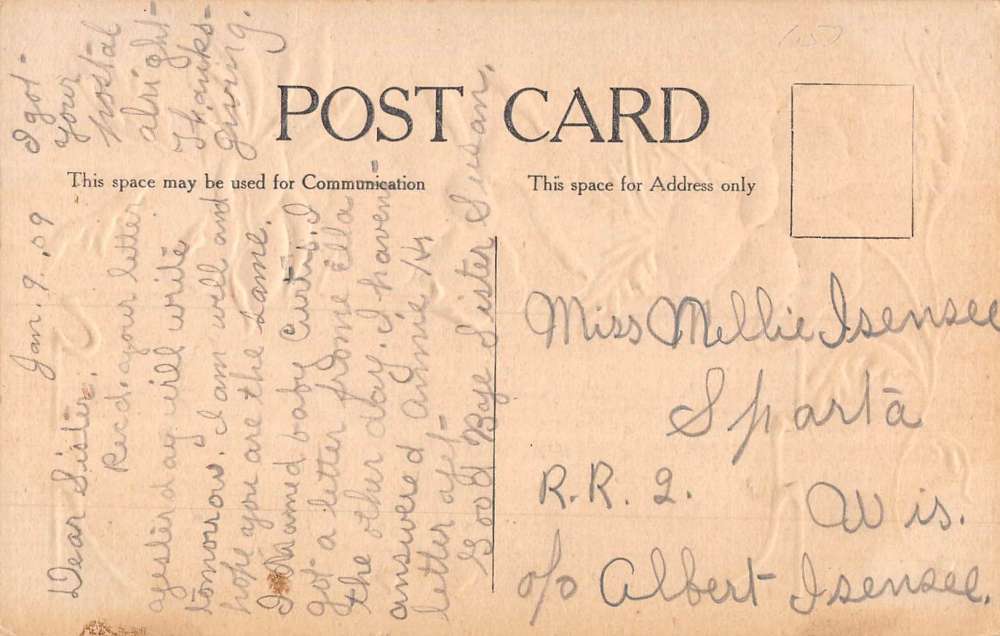 POST CARD
This space may be used for Communication
This space for Address only
Jan. 9. 09
Dear Sister.
Recd. your letter
yesterday will write
tomorrow. I am well and
hope you are the same.
I named baby Curtis. I
got a letter from Ella
the other day. I haven
answered Annie H
letter yet-
Good Bye Sister Susan.
I got-
your
postal
alright-
Thanks-
giving.
Miss Mellie Isensee
Sparta
R.R. 2.
Wis.
c/o Albert Isensee.